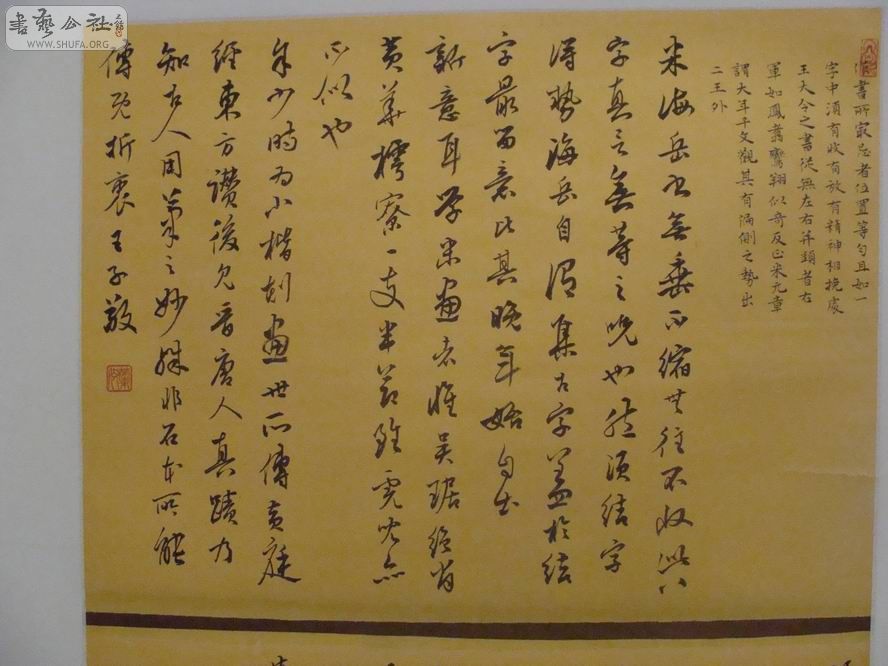 書藝公社
WWW.SHUFA.ORG
作書所最忌者位置等勻且如一
字中須有收有放有精神相挽處
王大令之書從無左右并頭者右
軍如鳳翥鸞翔似奇反正米元章
謂大年千文觀其有偏側之勢出
二王外
米海岳書無垂不縮無往不收此八
字真言無等之咒也然須結字
得勢海岳自謂集古字蓋於結
字最留意比其晚年始自出
新意耳學米書者惟吳琚絕肖
黃華樗寮一支半節雖虎兒亦
不似也
余少時為小楷刻畫世所傳黃庭
經東方讚後見晉唐人真蹟乃
知古人用筆之妙殊非石本所能
傳既折衷王子敬